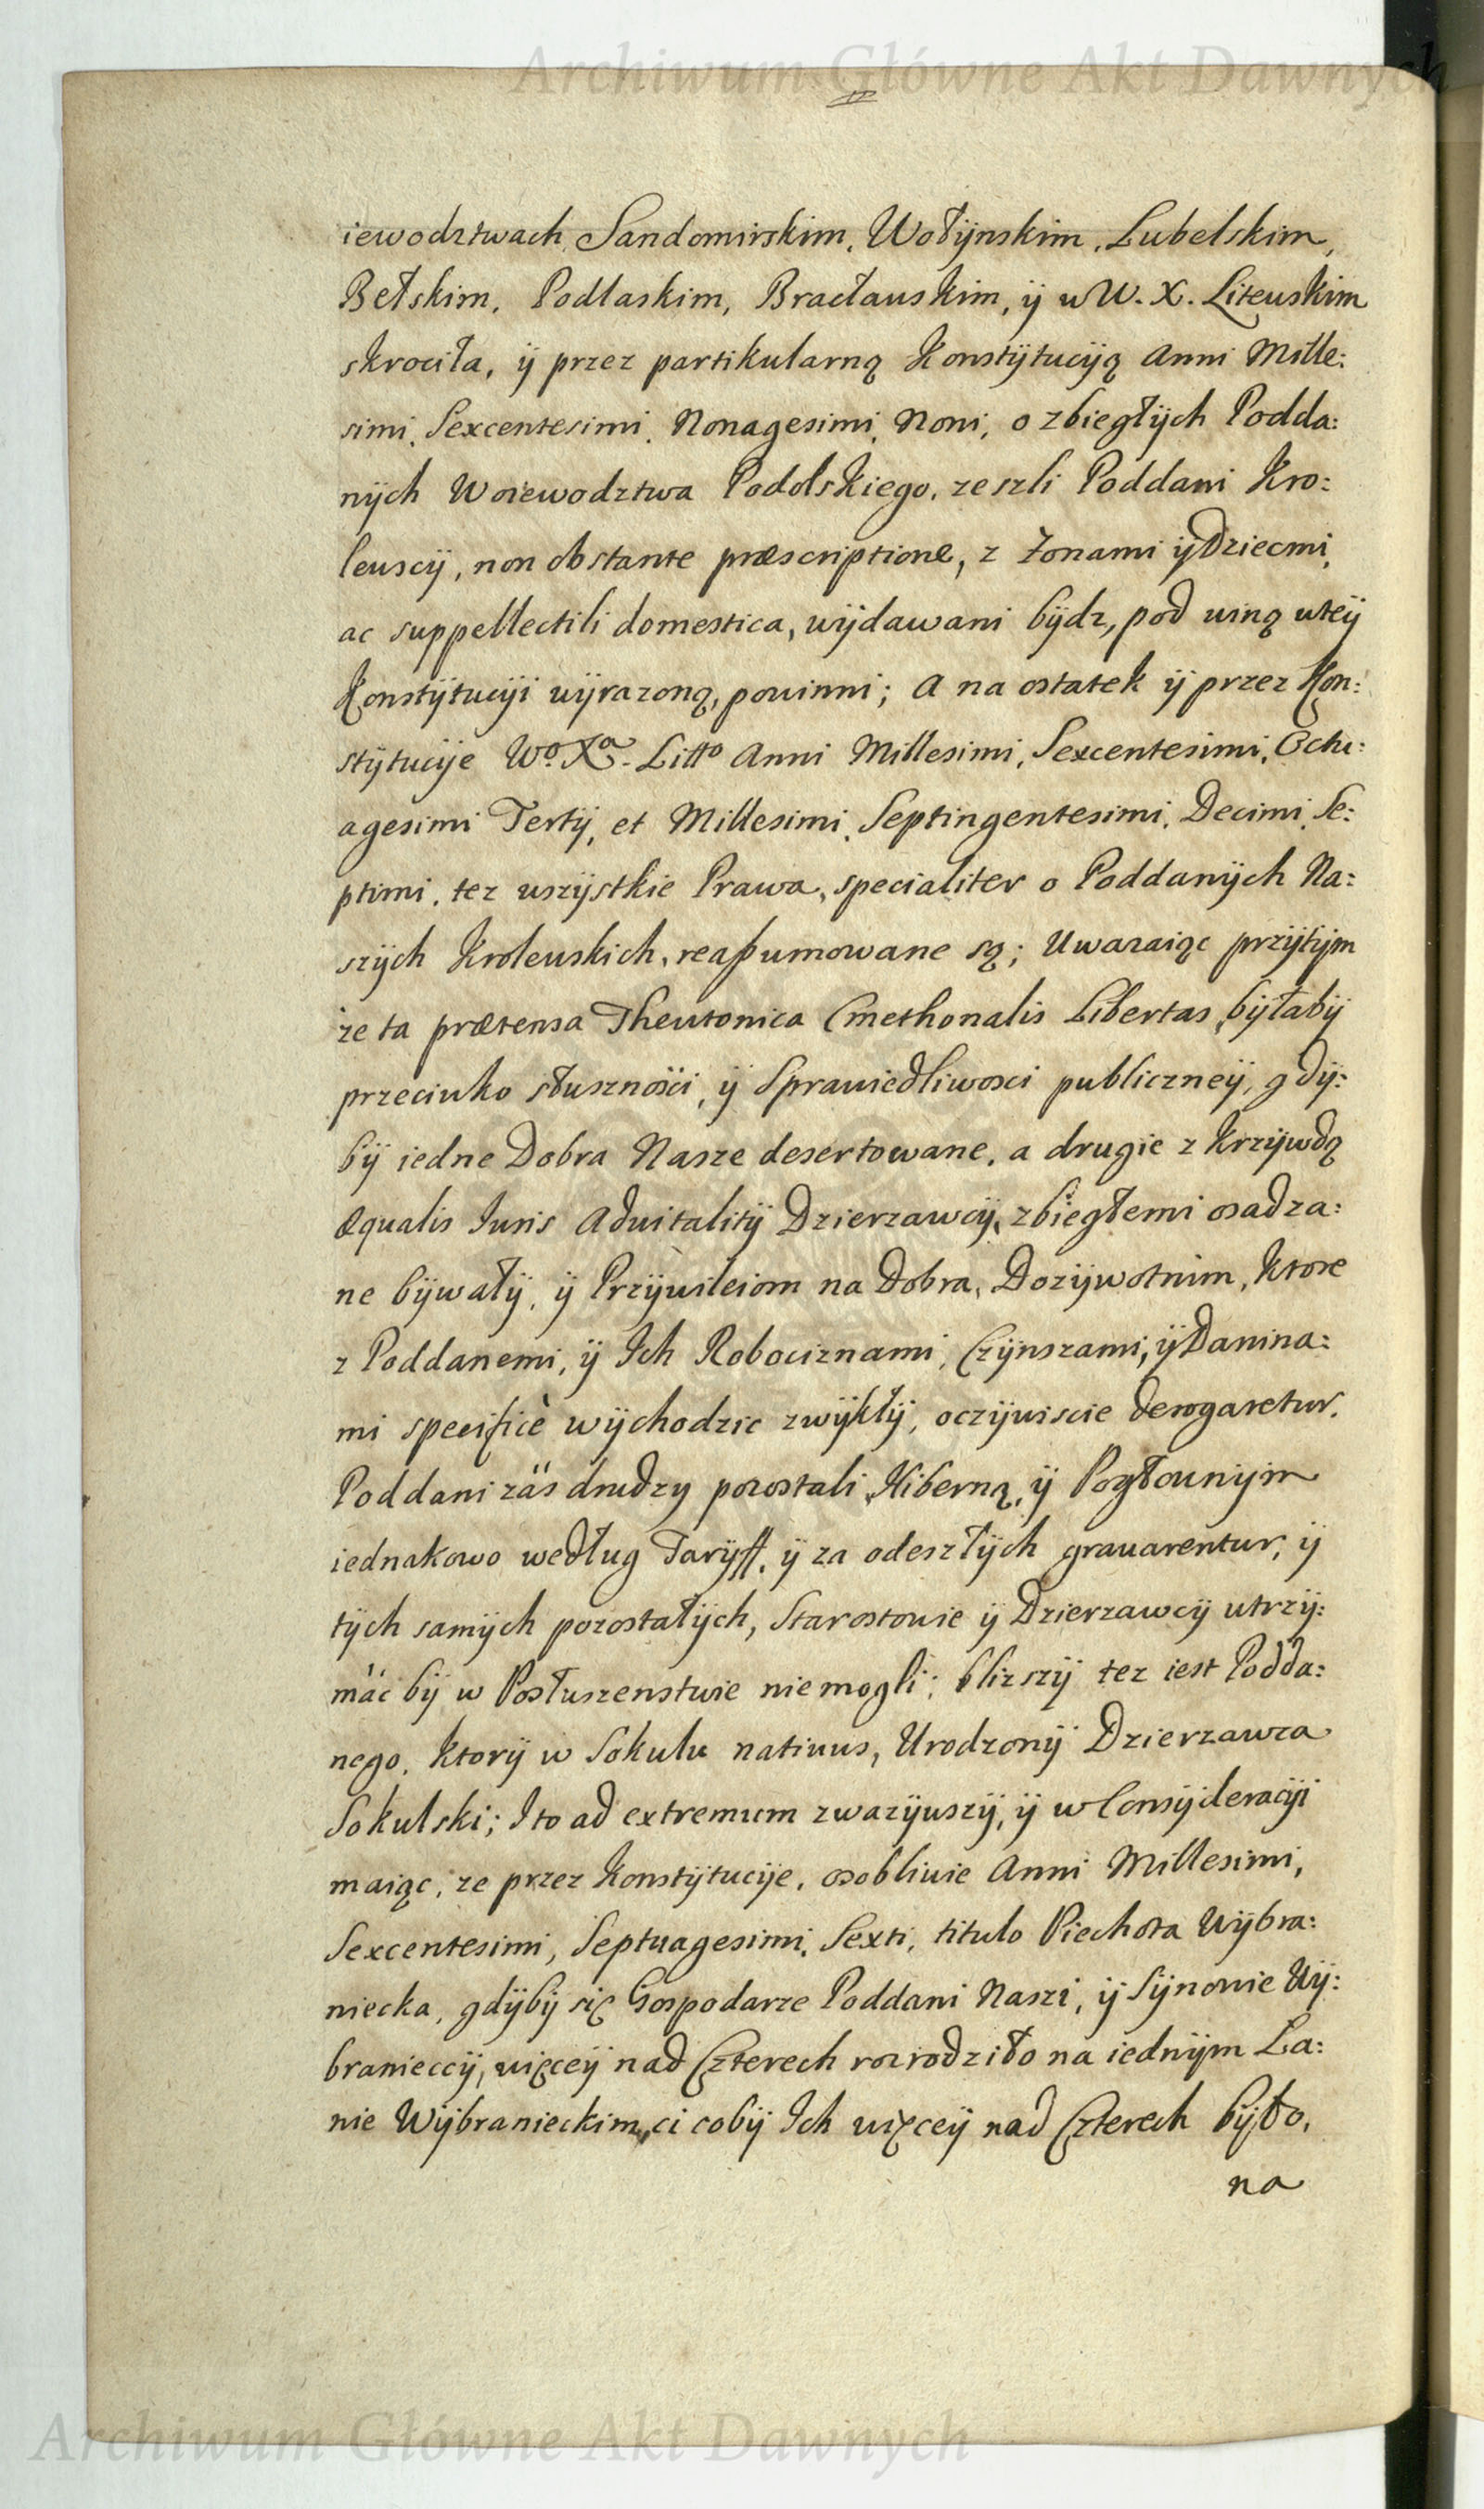 Archiwum Główne Akt Dawnych
iewodztwach Sandomirskim, Wołÿnskim, Lubelskim,
Bełskim, Podlaskim, Bracławskim, ÿ w W. X. Litewskim
skrociła, ÿ przez partikularną Konstÿtucÿą Anni Mille:
simi, Sexcentesimi, Nonagesimi, Noni, o zbiegłÿch Podda:
nÿch Woiewodztwa Podolskiego, zeszli Poddani Kro:
lewscÿ, non obstante præscriptione, z Zonami ÿ Dziecmi,
ac suppellectili domestica, wÿdawani bÿdz, pod winą wteÿ
Konstÿtucÿi wÿrazoną, powinni; A na ostatek ÿ przez Kon:
stÿtucÿe Wo. Xa. Litto Anni Millesimi, Sexcentesimi, Octu:
agesimi Tertÿ, et Millesimi, Septingentesimi, Decimi, Se:
ptimi, tez wszÿstkie Prawa, specialiter o Poddanÿch Na:
szÿch Krolewskich, reaßumowane są; Uwazaiąc przÿtÿm
ze ta prætensa Theutonica Cmethonalis Libertas, bÿłabÿ
przeciwko słusznosci, ÿ Sprawiedliwosci publiczneÿ, gdÿ:
bÿ iedne Dobra Nasze desertowane, a drugie z Krzÿwdą
æqualis Iuris Advitalitÿ Dzierzawcÿ, zbiegłemi osadza:
ne bÿwałÿ, ÿ Przÿwileiom na Dobra, Dozÿwotnim, Ktore
z Poddanemi, ÿ Ich Robociznami, Czÿnszami, ÿ Danina:
mi specificè wÿchodzic zwÿkłÿ, oczÿwiscie derogaretur.
Poddani zäs drudzy pozostali, Hiberną, ÿ Pogłownÿm
iednakowo według Tarÿff, ÿ za odeszłÿch gravarentur, ÿ
tÿch samÿch pozostałÿch, Starostowie ÿ Dzierzawcÿ utrzÿ:
mäc bÿ w Posłuszenstwie nie mogli; blizszÿ tez iest Podda:
nego, Ktorÿ w Sokulu nativus, Urodzonÿ Dzierzawza
Sokulski; I to ad extremum zwazÿwszÿ, ÿ w Consÿderacÿi
maiąc, ze przez Konstÿtucÿe, osobliwie Anni Millesimi,
Sexcentesimi, Septuagesimi, Sexti, titulo Piechota Wÿbra:
niecka, gdÿbÿ się Gospodarze Poddani Naszi, ÿ Sÿnowie Wÿ:
branieccÿ, więceÿ nad Czterech rozrodziło na iednÿm La:
nie Wÿbranieckim, ci cobÿ Ich więceÿ nad Czterech bÿło,
na
Archiwum Główne Akt Dawnych